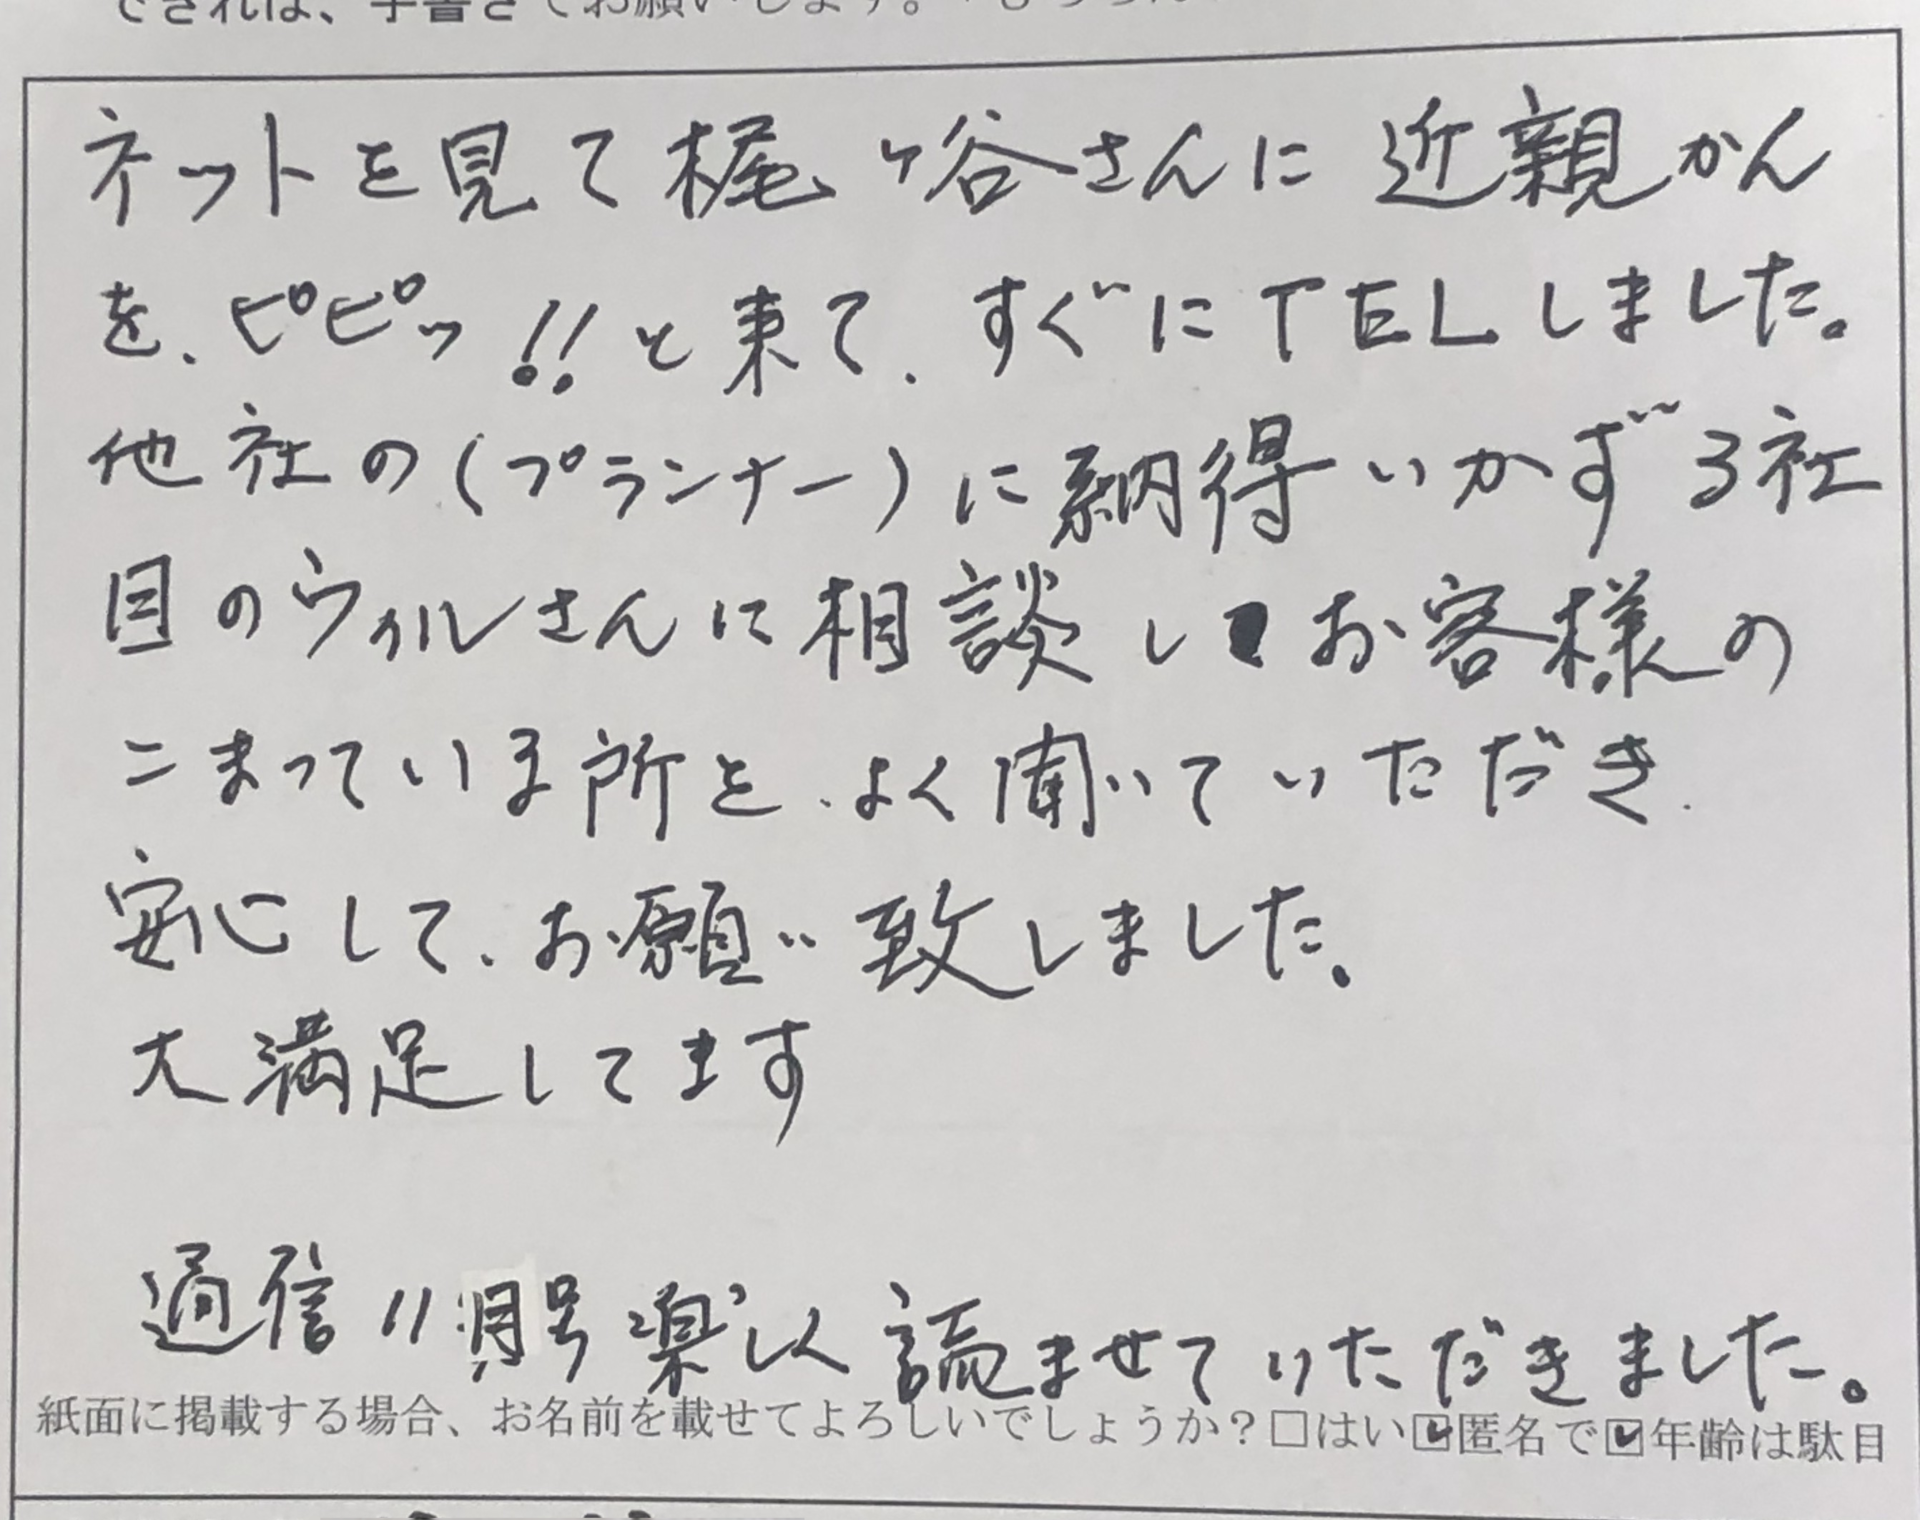 できれば、手書きでお願いします。
ネットを見て梶ヶ谷さんに近親かん
を、ピピッ!!と来て、すぐにTELしました。
他社の(プランナー)に納得いかず3社
目のウィルさんに相談し お客様の
こまっている所を、よく聞いていただき、
安心して、お願い致しました。
大満足してます
通信11月号楽しく読ませていただきました。
紙面に掲載する場合、お名前を載せてよろしいでしょうか?□はい☑匿名で☑年齢は駄目